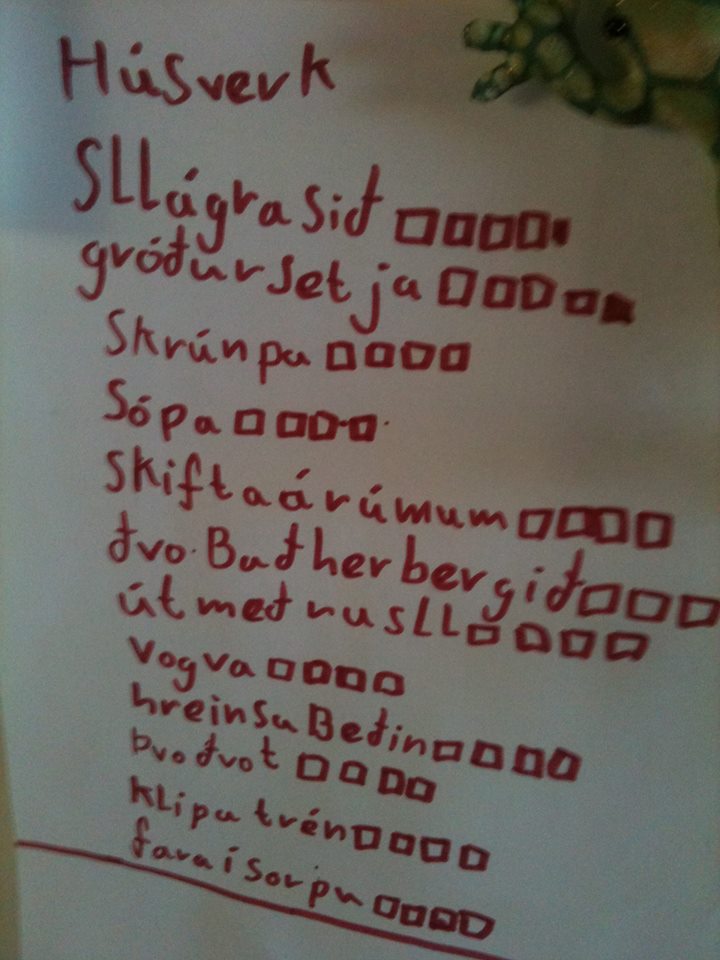 Húsverk
Sllágrasið □□□□▪
gróðursetja □□□□■
Skrúnpa □□□□
Sópa □□□□
Skiftaárúmum □□□□
đvo. Baðherbergið □□□
út með rusll □□□□
Vogva □□□□
hreinsa Beðin □□□□
þvo đvot □□□□
klipa trén □□□□
fara í sorpu □□□□